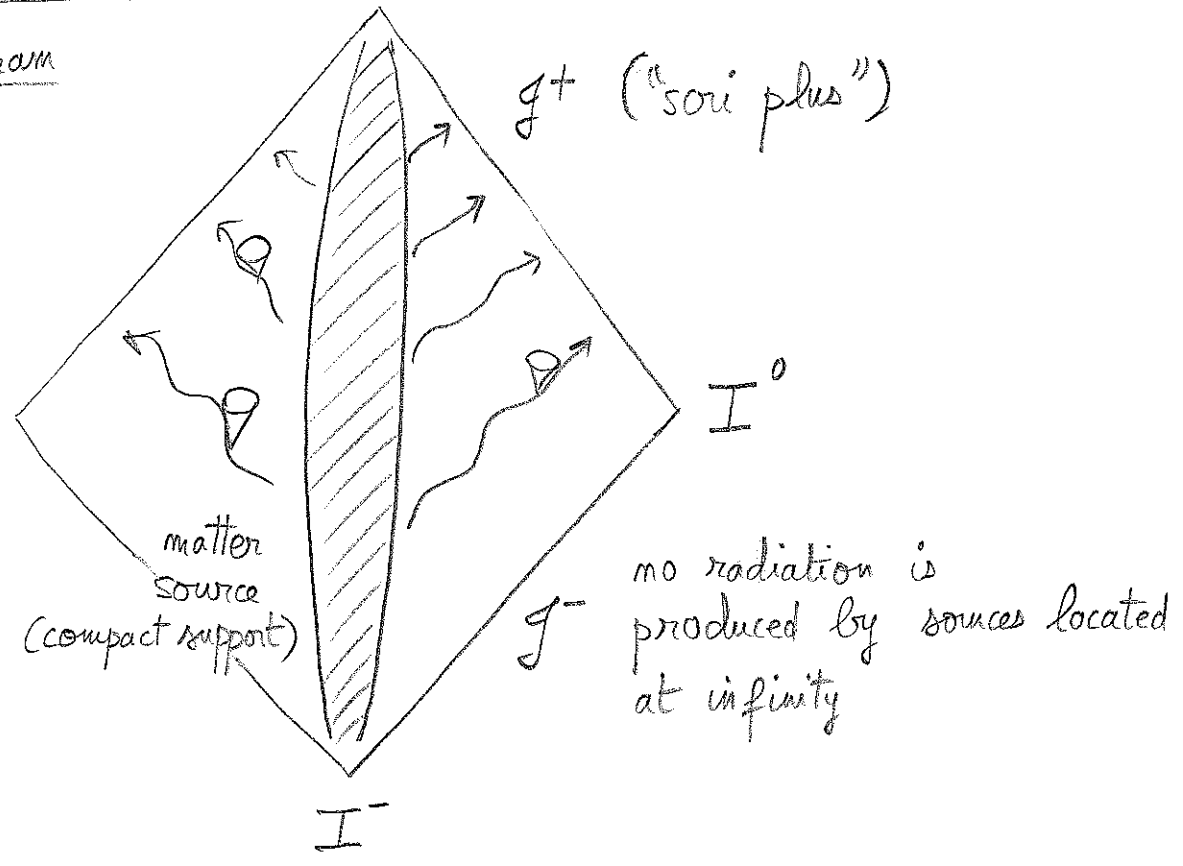 𝒥⁺ ("scri plus")
I⁰
matter
source
(compact support)
𝒥⁻
no radiation is
produced by sources located
at infinity
I⁻